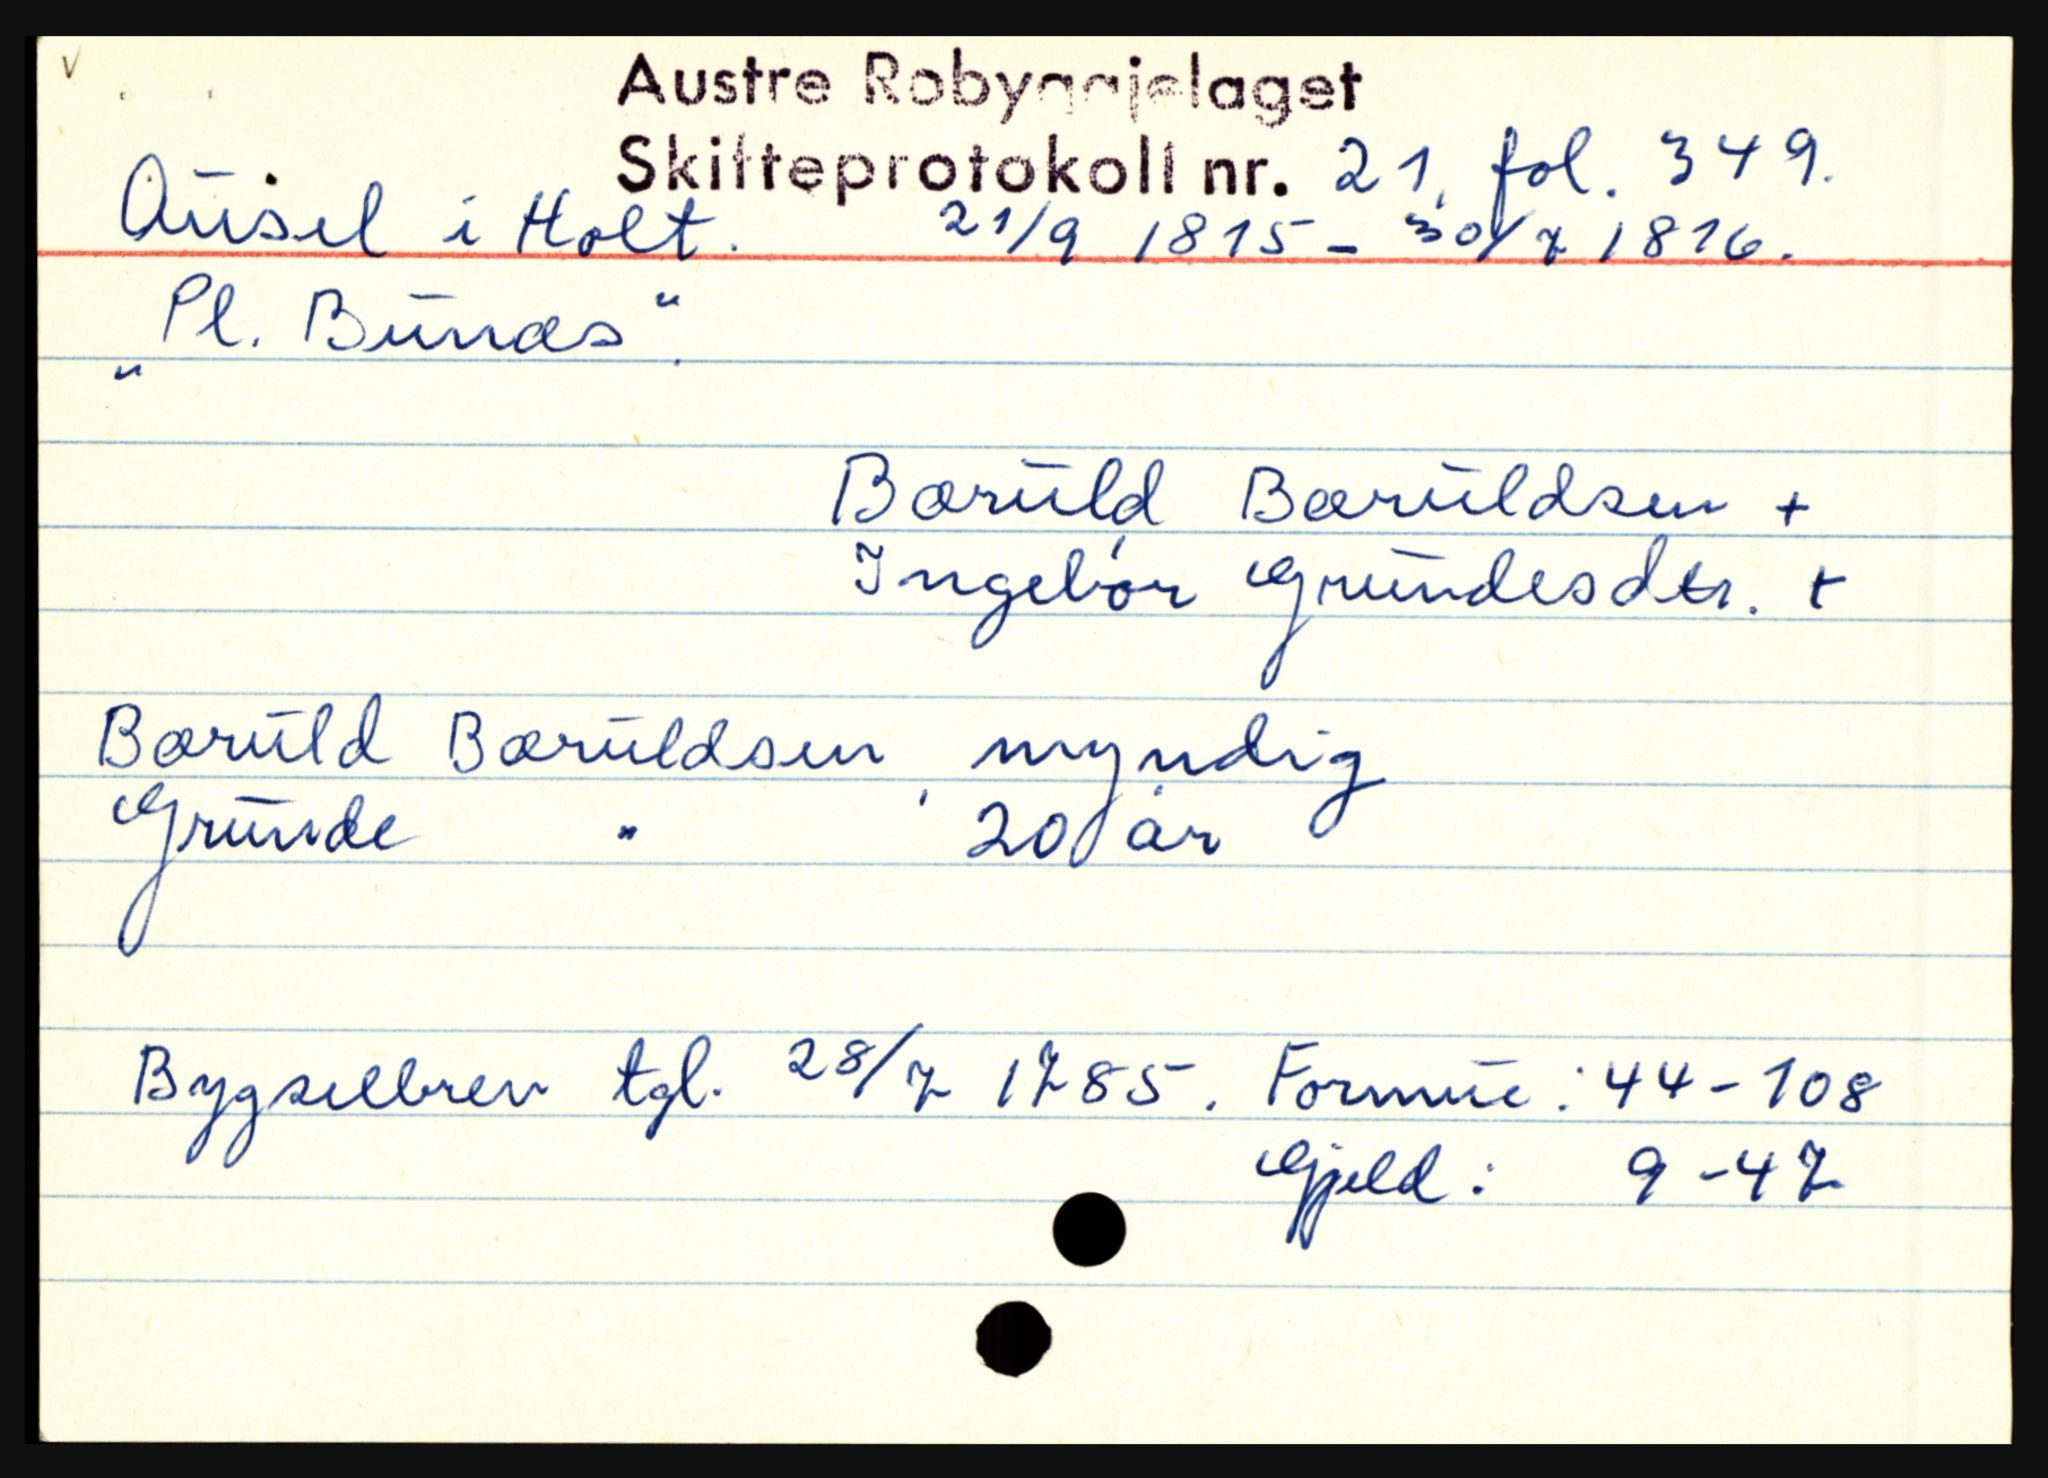 v
Austre Robyggjelaget
Skifteprotokoll nr. 21, fol. 349.
Ausel i Holt. 21/9 1815 - 30/7 1816.
"Pl. Bunæs".
Bæruld Bæruldsen +
Ingebor Gundesdtr. +
Bæruld Bæruldsen, myndig
Grunde " , 20 år
Bygselbrev tgl. 28/7 1785. Formue: 44-108
Gjeld: 9-47